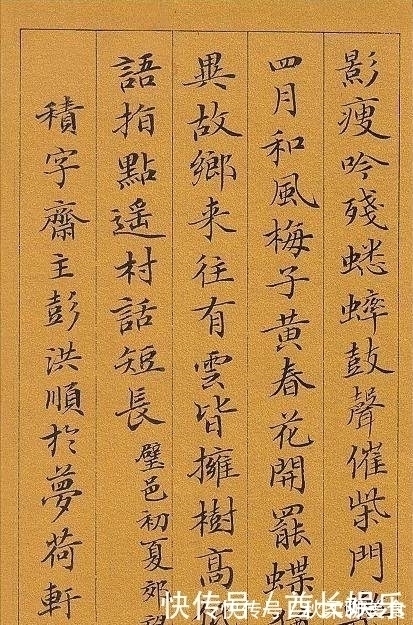 影瘦吟殘蟋蟀鼓聲催柴門
四月和風梅子黃春花開罷蝶
異故鄉来往有雲皆擁樹高
語指點遥村話短長
璧邑初夏郊望
積字齋主彭洪順於夢荷軒
快传号/酋长娱乐
快传号/